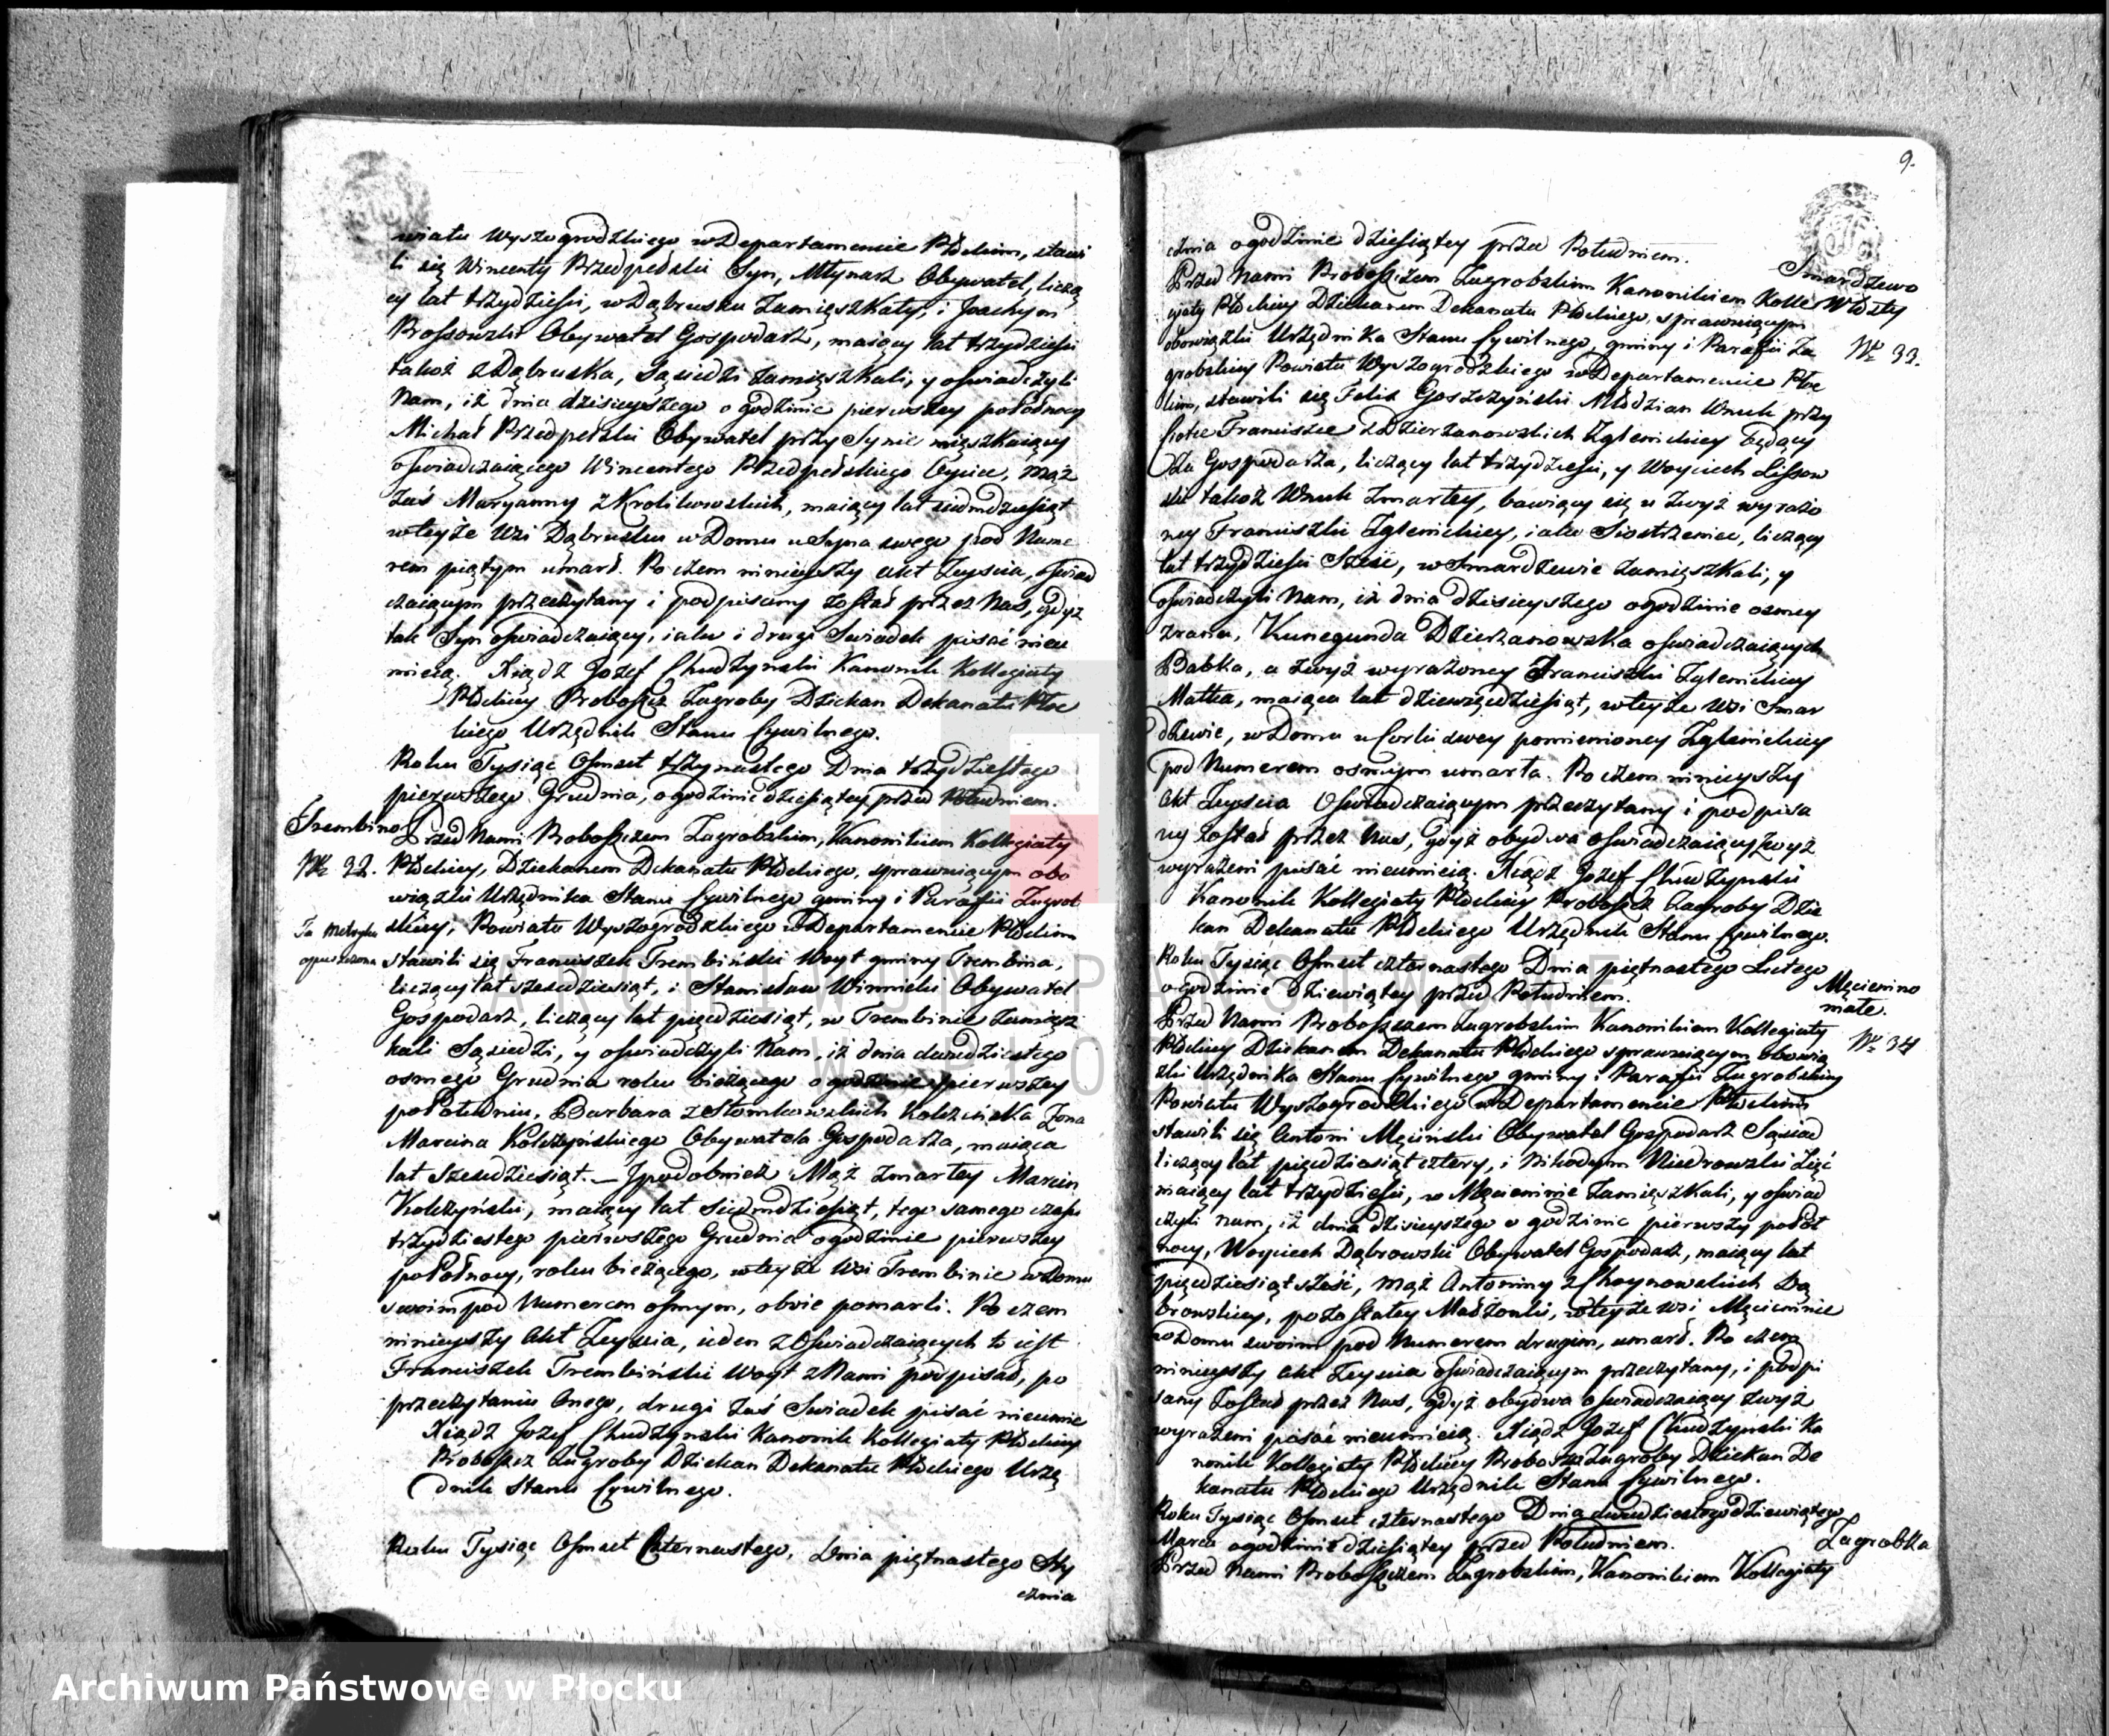 wiatu Wyszogrodzkiego w Departamencie Płockim, stawi
li się Wincenty Przedpełski Syn, Młynarz Obywatel, liczą
cy lat trzydzieści, w Dąbrusku Zamięszkały, i Joachym
Obywatel Gospodarz, maiący lat trzydzieści
takoż z Dąbruska, Sąsiedzi zamięszkali, y oświadczyli
Nam, iż dnia dzisieyszego o godzinie pierwszey popołnocy
Michał Przedpełski Obywatel przy Synie mięszkaiący
oświadczaiącego Wincentego Przedpełskiego Oyciec, mąż
zaś Maryanny z Krolikowskich, maiący lat siedmdziesiąt
wteyże Wsi Dąbrusku w Domu u Syna swego pod Nume
rem piątym umarł. Po czem ninieyszy akt Zeyścia, oświad
czaiącym przeczytany i podpisany został przez Nas, gdyż
tak Syn oświadczaiący, iako i drugi Swiadek pisać nieu
mieią. Xiądz Jozef Chudzynski Kanonik Kollegiaty
Płockiey Proboszcz Zagroby Dziekan Dekanatu Płoc
kiego Urzędnik Stanu Cywilnego.
Roku Tysiąc Osmset trzynastego Dnia trzydziestego
pierwszego Grudnia, o godzinie dziesiątey przed Południem.
Trembino
Przed Nami Proboszczem Zagrobskim, Kanonikiem Kollegiaty
Nr 32. Płockiey, Dziekanem Dekanatu Płockiego, sprawuiącym obo
wiązki Urzędnika Stanu Cywilnego gminy i Parafii Zagrob
Ta Metryka skiey, Powiatu Wyszogrodzkiego w Departamencie Płockim
opuszczona stawili się Franciszek Trembiński Woyt gminy Trembina,
liczący lat sześćdziesiąt, i Stanisław Winnicki Obywatel
Gospodarz, liczący lat pięćdziesiąt, w Trembinie Zamięsz
kali Sąsiedzi, y oświadczyli Nam, iż dnia dwudziestego
osmego Grudnia roku bieżącego o godzinie pierwszey
popołudniu, Barbara z Słomkowskich Kołczińska Żona
Marcina Kołczyńskiego Obywatela Gospodarza, maiąca
lat sześćdziesiąt. — Ipodobnież Mąż zmarłey Marcin
Kołczyński, maiący lat siedmdziesiąt, tego samego czasu
trzydziestego pierwszego Grudnia o godzinie pierwszey
popołnocy, roku bieżącego, wteyże Wsi Trembinie w Domu
swoim pod Numerem osmym, oboie pomarli. Po czem
ninieyszy Akt Zeyścia, ieden z Oświadczaiących to iest
Franciszek Trembiński Woyt z Nami podpisał, po
przeczytaniu Onego, drugi zaś Swiadek pisać nieumie
Xiądz Jozef Chudzynski Kanonik Kollegiaty Płockiey
Proboszcz Zagroby Dziekan Dekanatu Płockiego Urzę
dnik Stanu Cywilnego.
Roku Tysiąc Osmset Czternastego, Dnia piętnastego Sty
cznia
9.
cznia o godzinie dziesiątey przed Południem.
Smardzewo
Przed Nami Proboszczem Zagrobskim Kanonikiem Kolle
giaty Płockiey Dziekanem Dekanatu Płockiego, sprawuiącym
obowiązki Urzędnika Stanu Cywilnego, gminy i Parafii Za
Nr 33.
grobskiey Powiatu Wyszogrodzkiego w Departamencie Płoc
kim, stawili się Felix Goszczyński Młodzian Wnuk przy
Ciotce Franciszce z Dzierzanowskich Zglenickiey będący
Za Gospodarza, liczący lat trzydzieści, y Woyciech Lissow
ski takoż Wnuk Zmarłey, bawiący się u zwyż wyrażo
ney Franciszki Zglenickiey, iako Siostrzeniec, liczący
lat trzydzieści Sześć, w Smardzewie zamięszkali, y
oświadczyli Nam, iż dnia dzisieyszego o godzinie osmey
zrana, Kunegunda Dzierzanowska oświadczaiących
Babka, a zwyż wyrażoney Franciszki Zglenickiey
Matka, maiąca lat dziewięćdziesiąt, wteyże Wsi Smar
dzewie, w Domu u Corki swey pomienioney Zglenickiey
pod Numerem osmym umarła. Po czem ninieyszy
Akt Zeyścia Oświadczaiącym przeczytany i podpisa
ny został przez Nas, gdyż obydwa oświadczaiący zwyż
wyrażeni pisać nieumieią. Xiądz Jozef Chudzynski
Kanonik Kollegiaty Płockiey Proboszcz Zagroby Dzie
kan Dekanatu Płockiego Urzędnik Stanu Cywilnego.
Roku Tysiąc Osmset czternastego Dnia piętnastego Lutego
o godzinie dziewiątey przed Południem.
Męcienino
małe.
Przed Nami Proboszczem Zagrobskim Kanonikiem Kollegiaty
Nr 34
Płockiey Dziekanem Dekanatu Płockiego sprawuiącym obowią
zki Urzędnika Stanu Cywilnego gminy i Parafii Zagrobskiey
Powiatu Wyszogrodzkiego w Departamencie Płockim
stawili się Antoni Męciński Obywatel Gospodarz Sąsiad
liczący lat pięćdziesiąt cztery, i Nikodym Niedrowski Zięć
maiący lat trzydzieści, w Męcieninie Zamięszkali, y oświad
czyli nam, iż dnia dzisieyszego o godzinie pierwszy popoł
nocy, Woyciech Dąbrowski Obywatel Gospodarz, maiący lat
pięćdziesiąt sześć, mąż Antoniny z Choynowskich Dą
browskiey, pozostałey Małżonki, wteyże wsi Męcieninie
w Domu swoim pod Numerem drugim, umarł. Po czem
ninieyszy akt Zeyścia oświadczaiącym przeczytany, i podpi
sany został przez Nas, gdyż obydwa oświadczaiący zwyż
wyrażeni pisać nieumieią. Xiądz Jozef Chudzynski Ka
nonik Kollegiaty Płockiey Proboszcz Zagroby Dziekan De
kanatu Płockiego Urzędnik Stanu Cywilnego.
Roku Tysiąc Osmset czternastego Dnia dwudziestego dziewiątego
Marca o godzinie dziesiątey przed Południem.
Zagrobka
Przed Nami Proboszczem Zagrobskim, Kanonikiem Kollegiaty
Archiwum Państwowe w Płocku